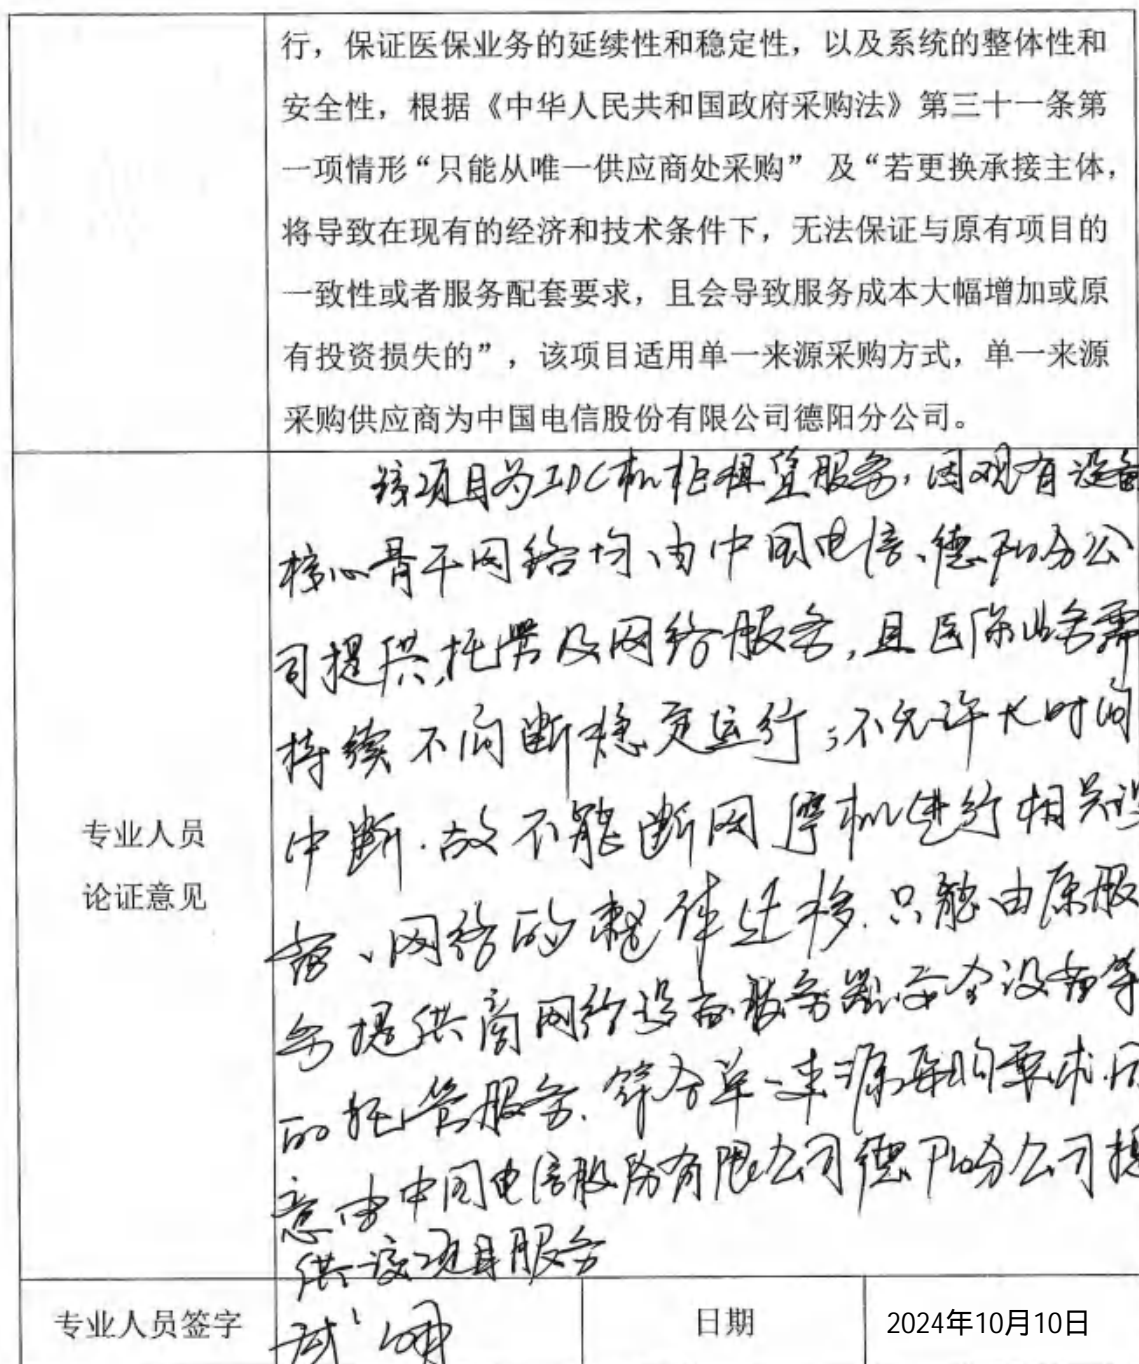 行，保证医保业务的延续性和稳定性，以及系统的整体性和
安全性，根据《中华人民共和国政府采购法》第三十一条第
一项情形“只能从唯一供应商处采购” 及“若更换承接主体，
将导致在现有的经济和技术条件下，无法保证与原有项目的
一致性或者服务配套要求，且会导致服务成本大幅增加或原
有投资损失的”，该项目适用单一来源采购方式，单一来源
采购供应商为中国电信股份有限公司德阳分公司。
专业人员
论证意见
该项目为IDC机柜租赁服务，因现有设备
核心骨干网络均由中国电信、德阳分公
司提供，托管及网络服务，且医保业务需
持续不间断稳定运行；不允许长时间
中断.故不能断网停机进行相关设
备、网络的整体迁移.只能由原服
务提供商网络设备服务器安全设备等
的托管服务.符合单一来源采购要求.同
意由中国电信股份有限公司德阳分公司提
供该项目服务
专业人员签字
日期
2024年10月10日